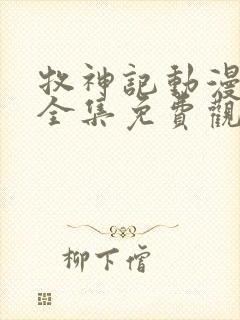 牧神記動漫
全集免費觀
柳下僧